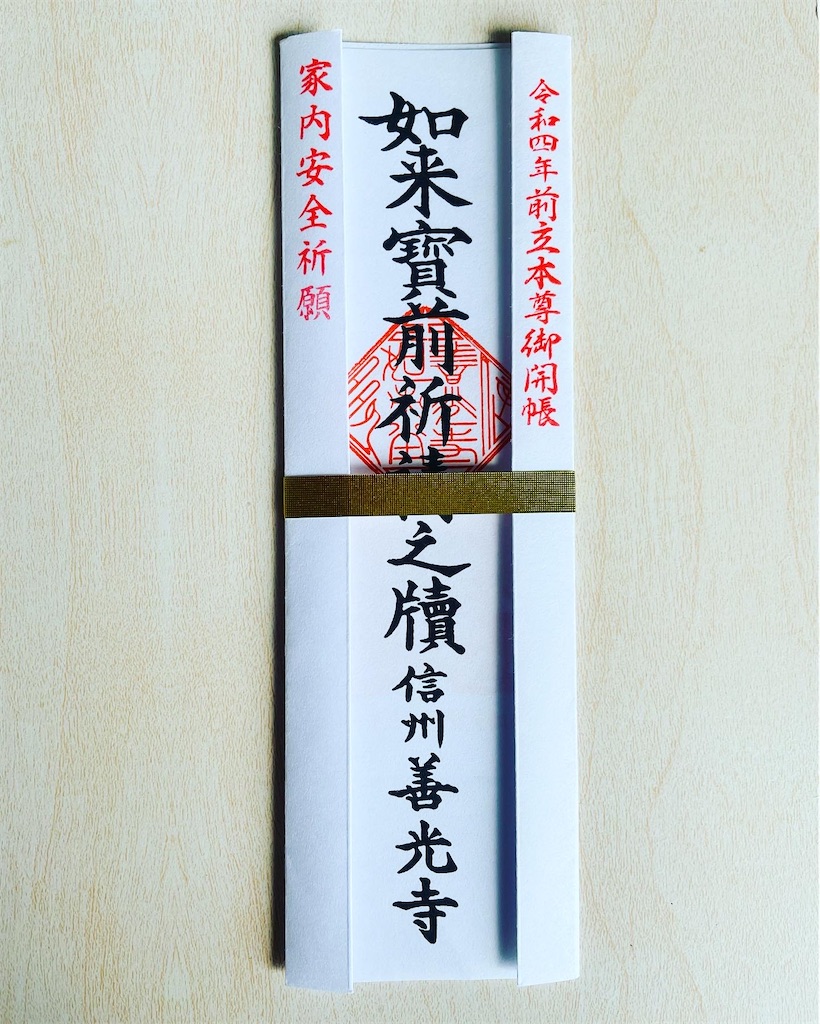 令和四年前立本尊御開帳
如来寶前祈之牘信州善光寺
家内安全祈願